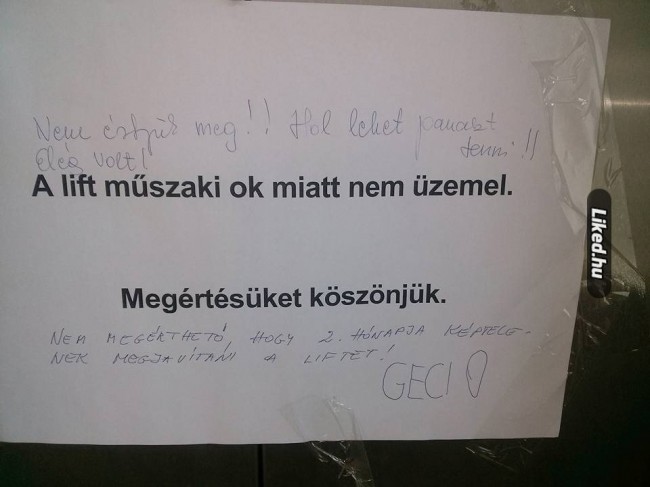 Nem értjük meg!! Hol lehet panaszt
Elég volt! tenni!!
A lift műszaki ok miatt nem üzemel.
Megértésüket köszönjük.
NEM MEGÉRTHETŐ HOGY 2. HÓNAPJA KÉPTELE-
NEK MEGJAVÍTANI A LIFTET!
GECI
Liked.hu